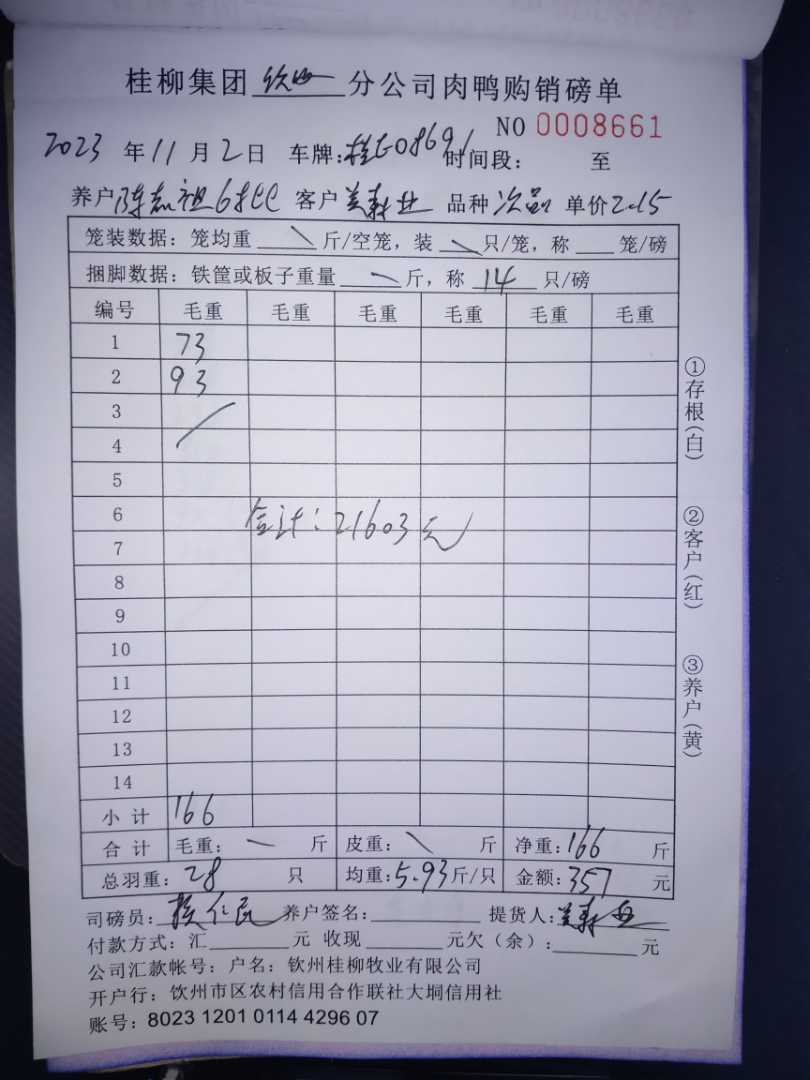 桂柳集团 钦州 分公司肉鸭购销磅单
NO 0008661
2023 年 11 月 2 日 车牌: 时间段: 至
养户 陈 祖6批 客户 业 品种 次品 单价 2.15
笼装数据: 笼均重 斤/空笼, 装 只/笼, 称 笼/磅
捆脚数据: 铁筐或板子重量 斤, 称 14 只/磅
编号 毛重 毛重 毛重 毛重 毛重 毛重
1 73
2 93
3
4
5
6
合计: 21603元
7
8
9
10
11
12
13
14
小计 166
合计 毛重: 斤 皮重: 斤 净重: 166 斤
总羽重: 28 只 均重: 5.93 斤/只 金额: 357 元
司磅员: 民 养户签名: 提货人: 业
付款方式: 汇 元 收现 元欠(余): 元
公司汇款帐号: 户名: 钦州桂柳牧业有限公司
开户行: 钦州市区农村信用合作联社大垌信用社
账号: 8023 1201 0114 4296 07
①存根(白)
②客户(红)
③养户(黄)